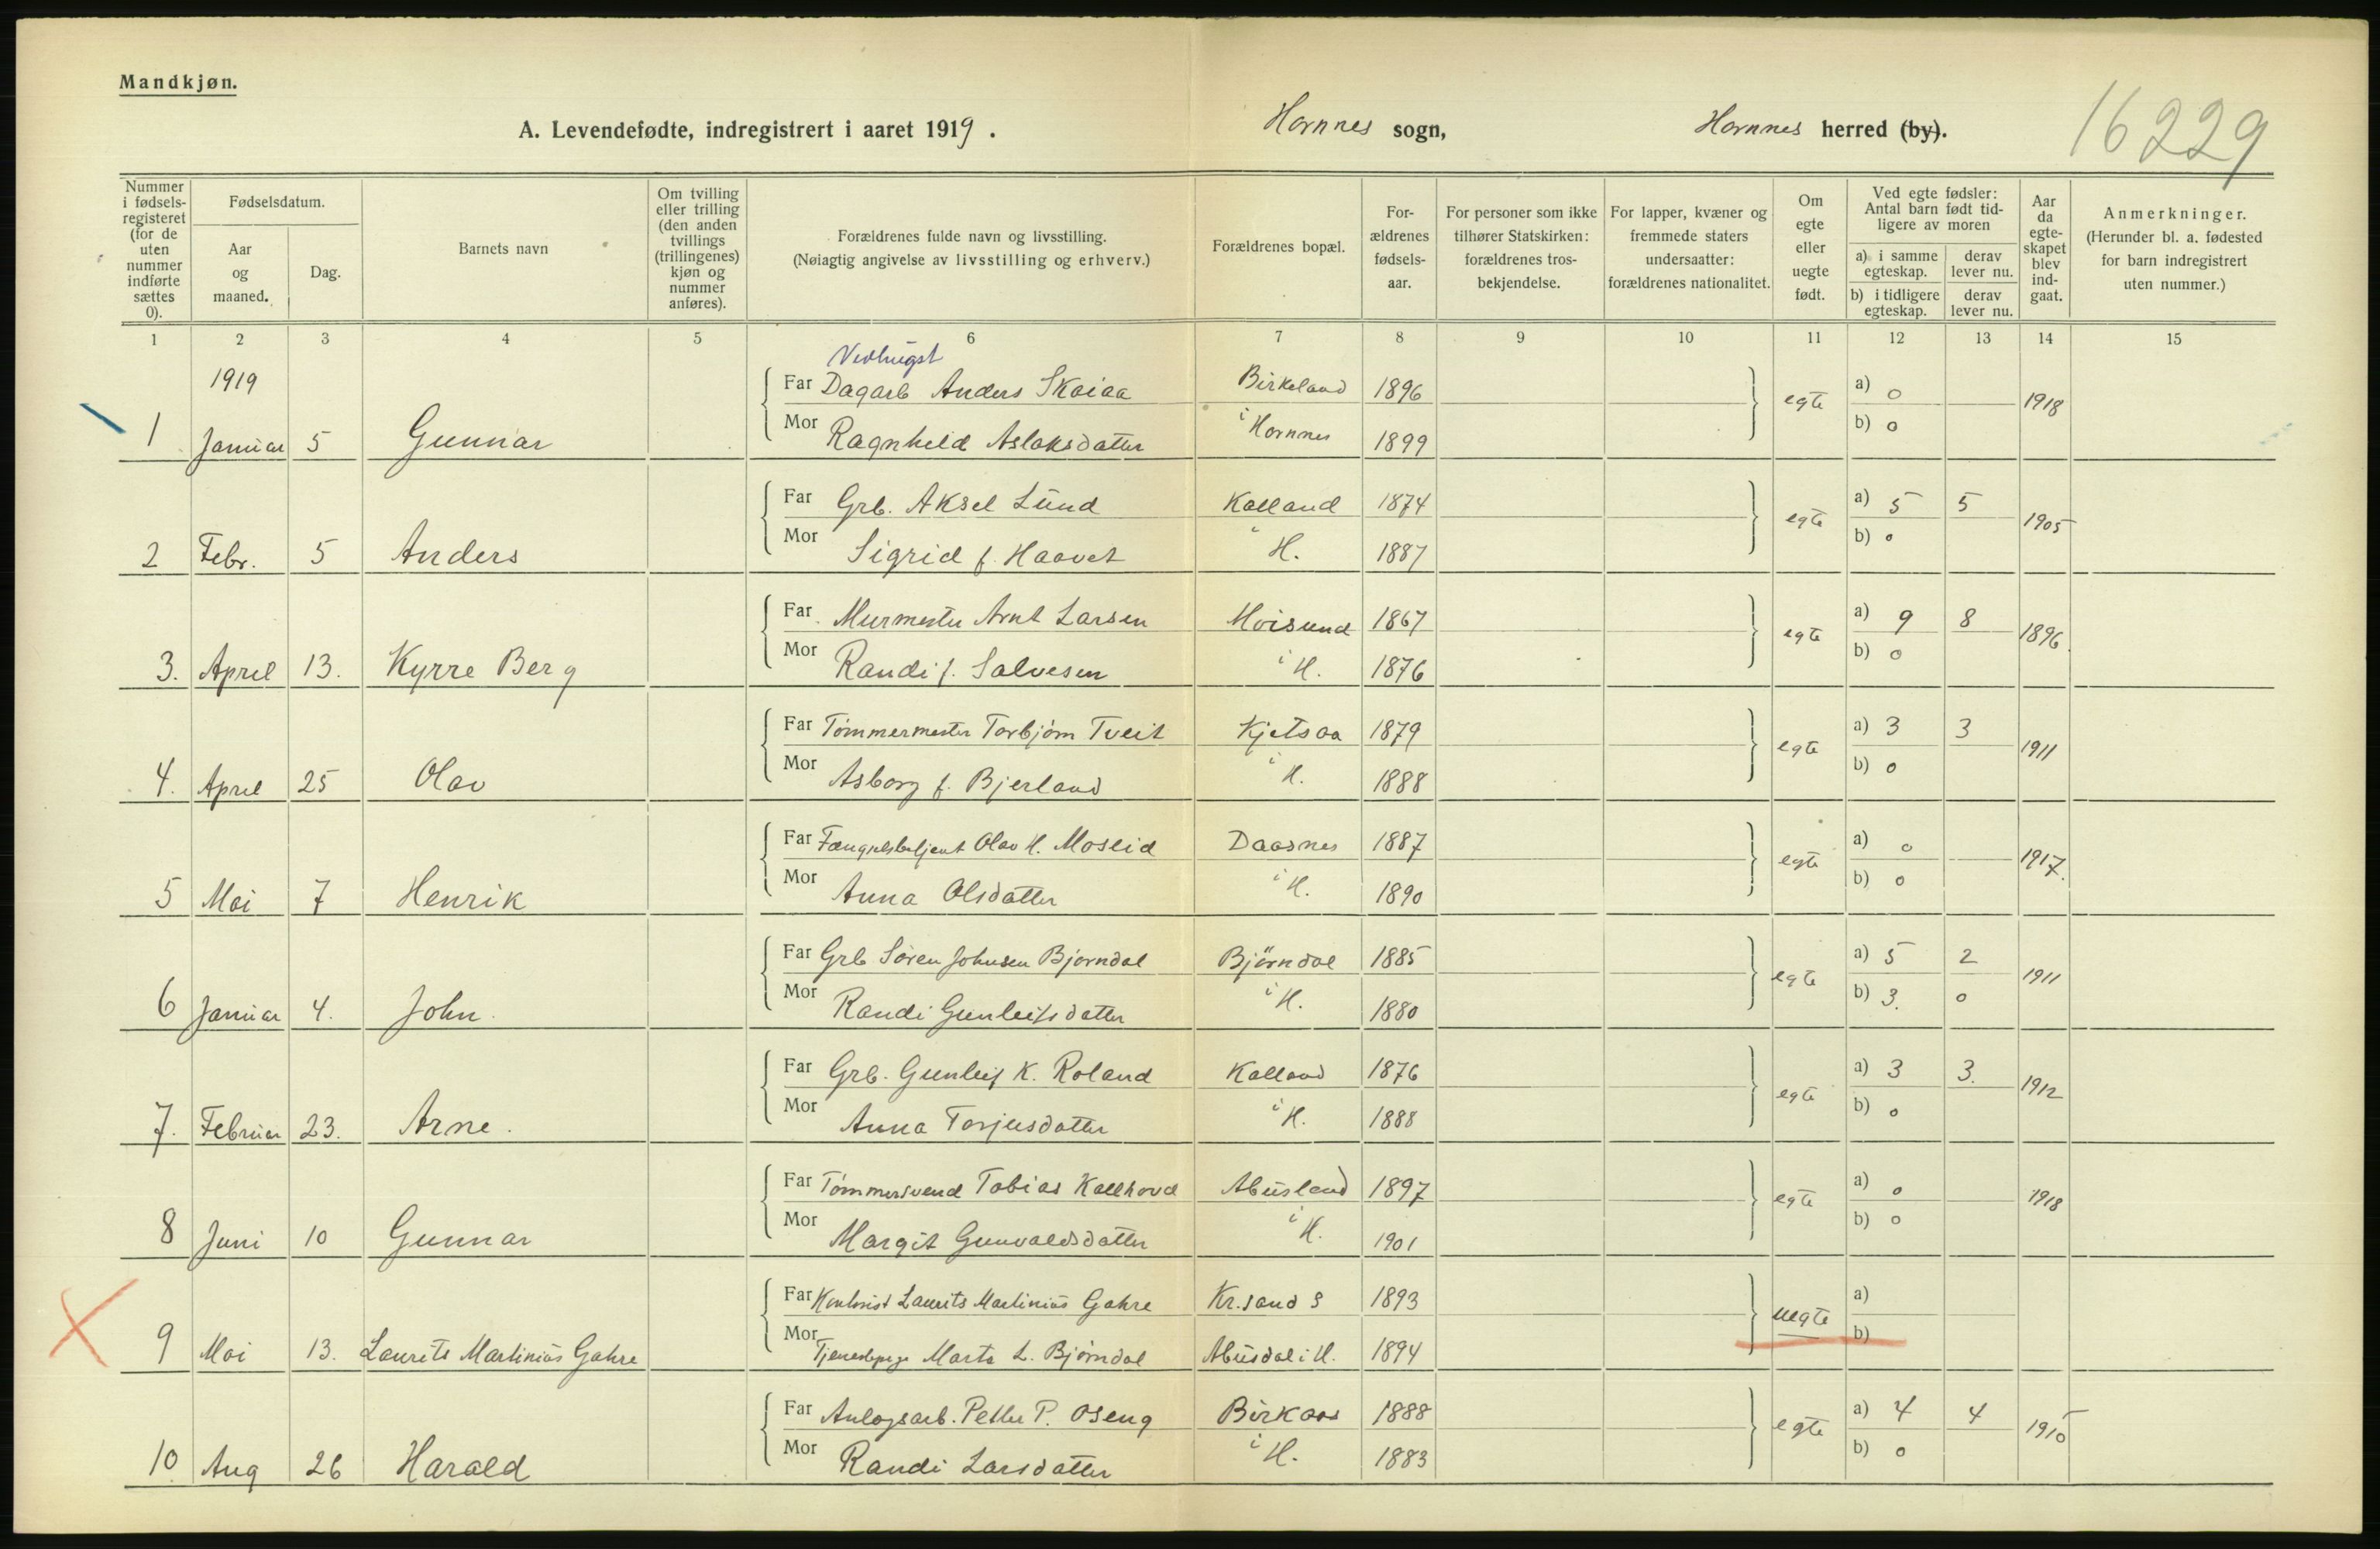 Mandkjøn.
A. Levendefødte, indregistrert i aaret 1919.
Hornnes sogn,
Hornnes herred (by).
16229
Nummer i fødsels-registeret (for de uten nummer indførte sættes 0).
Fødselsdatum.
Aar og maaned.
Dag.
Barnets navn
Om tvilling eller trilling (den anden tvillings (trillingenes) kjøn og nummer anføres).
Forældrenes fulde navn og livsstilling.
(Nøiagtig angivelse av livsstilling og erhverv.)
Forældrenes bopæl.
For-ældrenes fødsels-aar.
For personer som ikke tilhører Statskirken: forældrenes tros-bekjendelse.
For lapper, kvæner og fremmede staters undersaatter: forældrenes nationalitet.
Om egte eller uegte født.
Ved egte fødsler: Antal barn født tid-ligere av moren
a) i samme egteskap.
derav lever nu.
b) i tidligere egteskap.
derav lever nu.
Aar da egte-skapet blev ind-gaat.
Anmerkninger.
(Herunder bl. a. fødested for barn indregistrert uten nummer.)
1 2 3 4 5 6 7 8 9 10 11 12 13 14 15
1919
Vedhugst
Far Dagarb Anders Skaiaa Birkeland 1896 egte a) 0 1918
1 Januar 5 Gunnar Mor Ragnhild Aslaksdatter i Hornnes 1899 b) 0
Far Grb. Aksel Lund Kalland 1874 egte a) 5 5 1905
2 Febr. 5 Anders Mor Sigrid f. Haavet i H. 1887 b) 0
Far Murmester Arnt Larsen Moisund 1867 egte a) 9 8 1896
3. April 13. Kyrre Berg Mor Randi f. Salvesen i H. 1876 b) 0
Far Tømmermester Torbjørn Tveit Kjetsaa 1879 egte a) 3 3 1911
4. April 25 Olav Mor Asborg f. Bjerland i H. 1888 b) 0
Far Fængselsbetjent Olav H. Moseid Daasnes 1887 egte a) 0 1917.
5 Mai 7 Henrik Mor Anna Olsdatter i H. 1890 b) 0
Far Grb Søren Johnsen Bjørndal Bjørndal 1885 egte a) 5 2 1911
6 Januar 4. John. Mor Randi Gunleifsdatter i H. 1880 b) 3. 0
Far Grb. Gunleif K. Roland Kalland 1876 egte a) 3 3. 1912
7. Februar 23. Arne. Mor Anna Torjusdatter i H. 1888 b) 0
Far Tømmersvend Tobias Kallhovd Abusland 1897 egte a) 0 1918
8 Juni 10 Gunnar Mor Margit Gunvaldsdatter i H. 1901 b) 0
Far Laurits Martinius Gahre Kr.sand S 1893 uegte a)
9 Mai 13. Laurits Martinius Gahre Mor Tjenestepige Marta L. Bjørndal Abusdal i H. 1894 b)
Far Anlogsarb. Petter P. Oseng Birkaas 1888 egte a) 4 4
10 Aug 26 Harald Mor Randi Larsdatter i H. 1883 b) 0